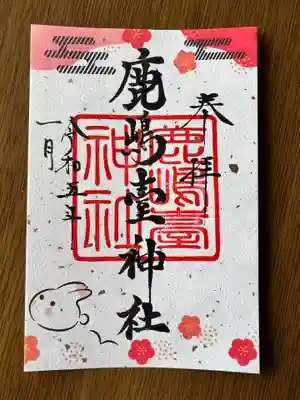 奉拝
鹿嶋臺神社
鹿嶋臺
神社
令和五年
一月